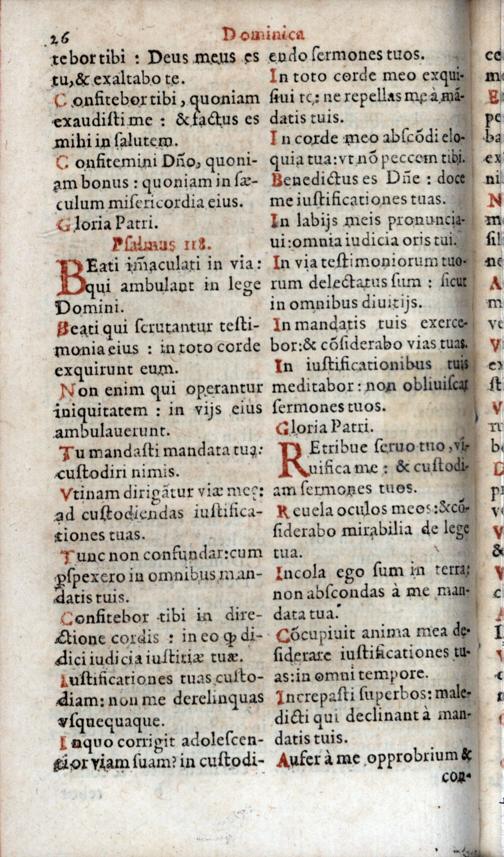 26 Dominica
tebor tibi : Deus meus es
tu,& exaltabo te.
Confitebor tibi, quoniam
exaudisti me : & factus es
mihi in salutem.
Confitemini Dño, quoni-
am bonus : quoniam in sæ-
culum misericordia eius.
Gloria Patri.
Psalmus 118.
BEati im̃aculati in via :
qui ambulant in lege
Domini.
Beati qui scrutantur testi-
monia eius : in toto corde
exquirunt eum.
Non enim qui operantur
iniquitatem : in vijs eius
ambulauerunt.
Tu mandasti mandata tua:
custodiri nimis.
Vtinam dirigãtur viæ meę:
ad custodiendas iustifica-
tiones tuas.
Tunc non confundar:cum
ꝑspexero in omnibus man-
datis tuis.
Confitebor tibi in dire-
ctione cordis : in eo ꝙ di-
dici iudicia iustitiæ tuæ.
Iustificationes tuas custo-
diam: non me derelinquas
vsquequaque.
In quo corrigit adolescen-
tior viam suam? in custodi-
endo sermones tuos.
In toto corde meo exqui-
siui te: ne repellas me à mã-
datis tuis.
In corde meo abscõdi elo-
quia tua: vt nõ peccem tibi.
Benedictus es Dñe : doce
me iustificationes tuas.
In labijs meis pronuncia-
ui:omnia iudicia oris tui.
In via testimoniorum tuo-
rum delectatus sum : sicut
in omnibus diuitijs.
In mandatis tuis exerce-
bor:& cõsiderabo vias tuas.
In iustificationibus tuis
meditabor : non obliuiscar
sermones tuos.
Gloria Patri.
REtribue seruo tuo , vi-
uifica me : & custodi-
am sermones tuos.
Reuela oculos meos:&cõ-
siderabo mirabilia de lege
tua.
Incola ego sum in terra:
non abscondas à me man-
data tua.
Cõcupiuit anima mea de-
siderare iustificationes tu-
as:in omni tempore.
Increpasti superbos: male-
dicti qui declinant à man-
datis tuis.
Aufer à me opprobrium &
con-